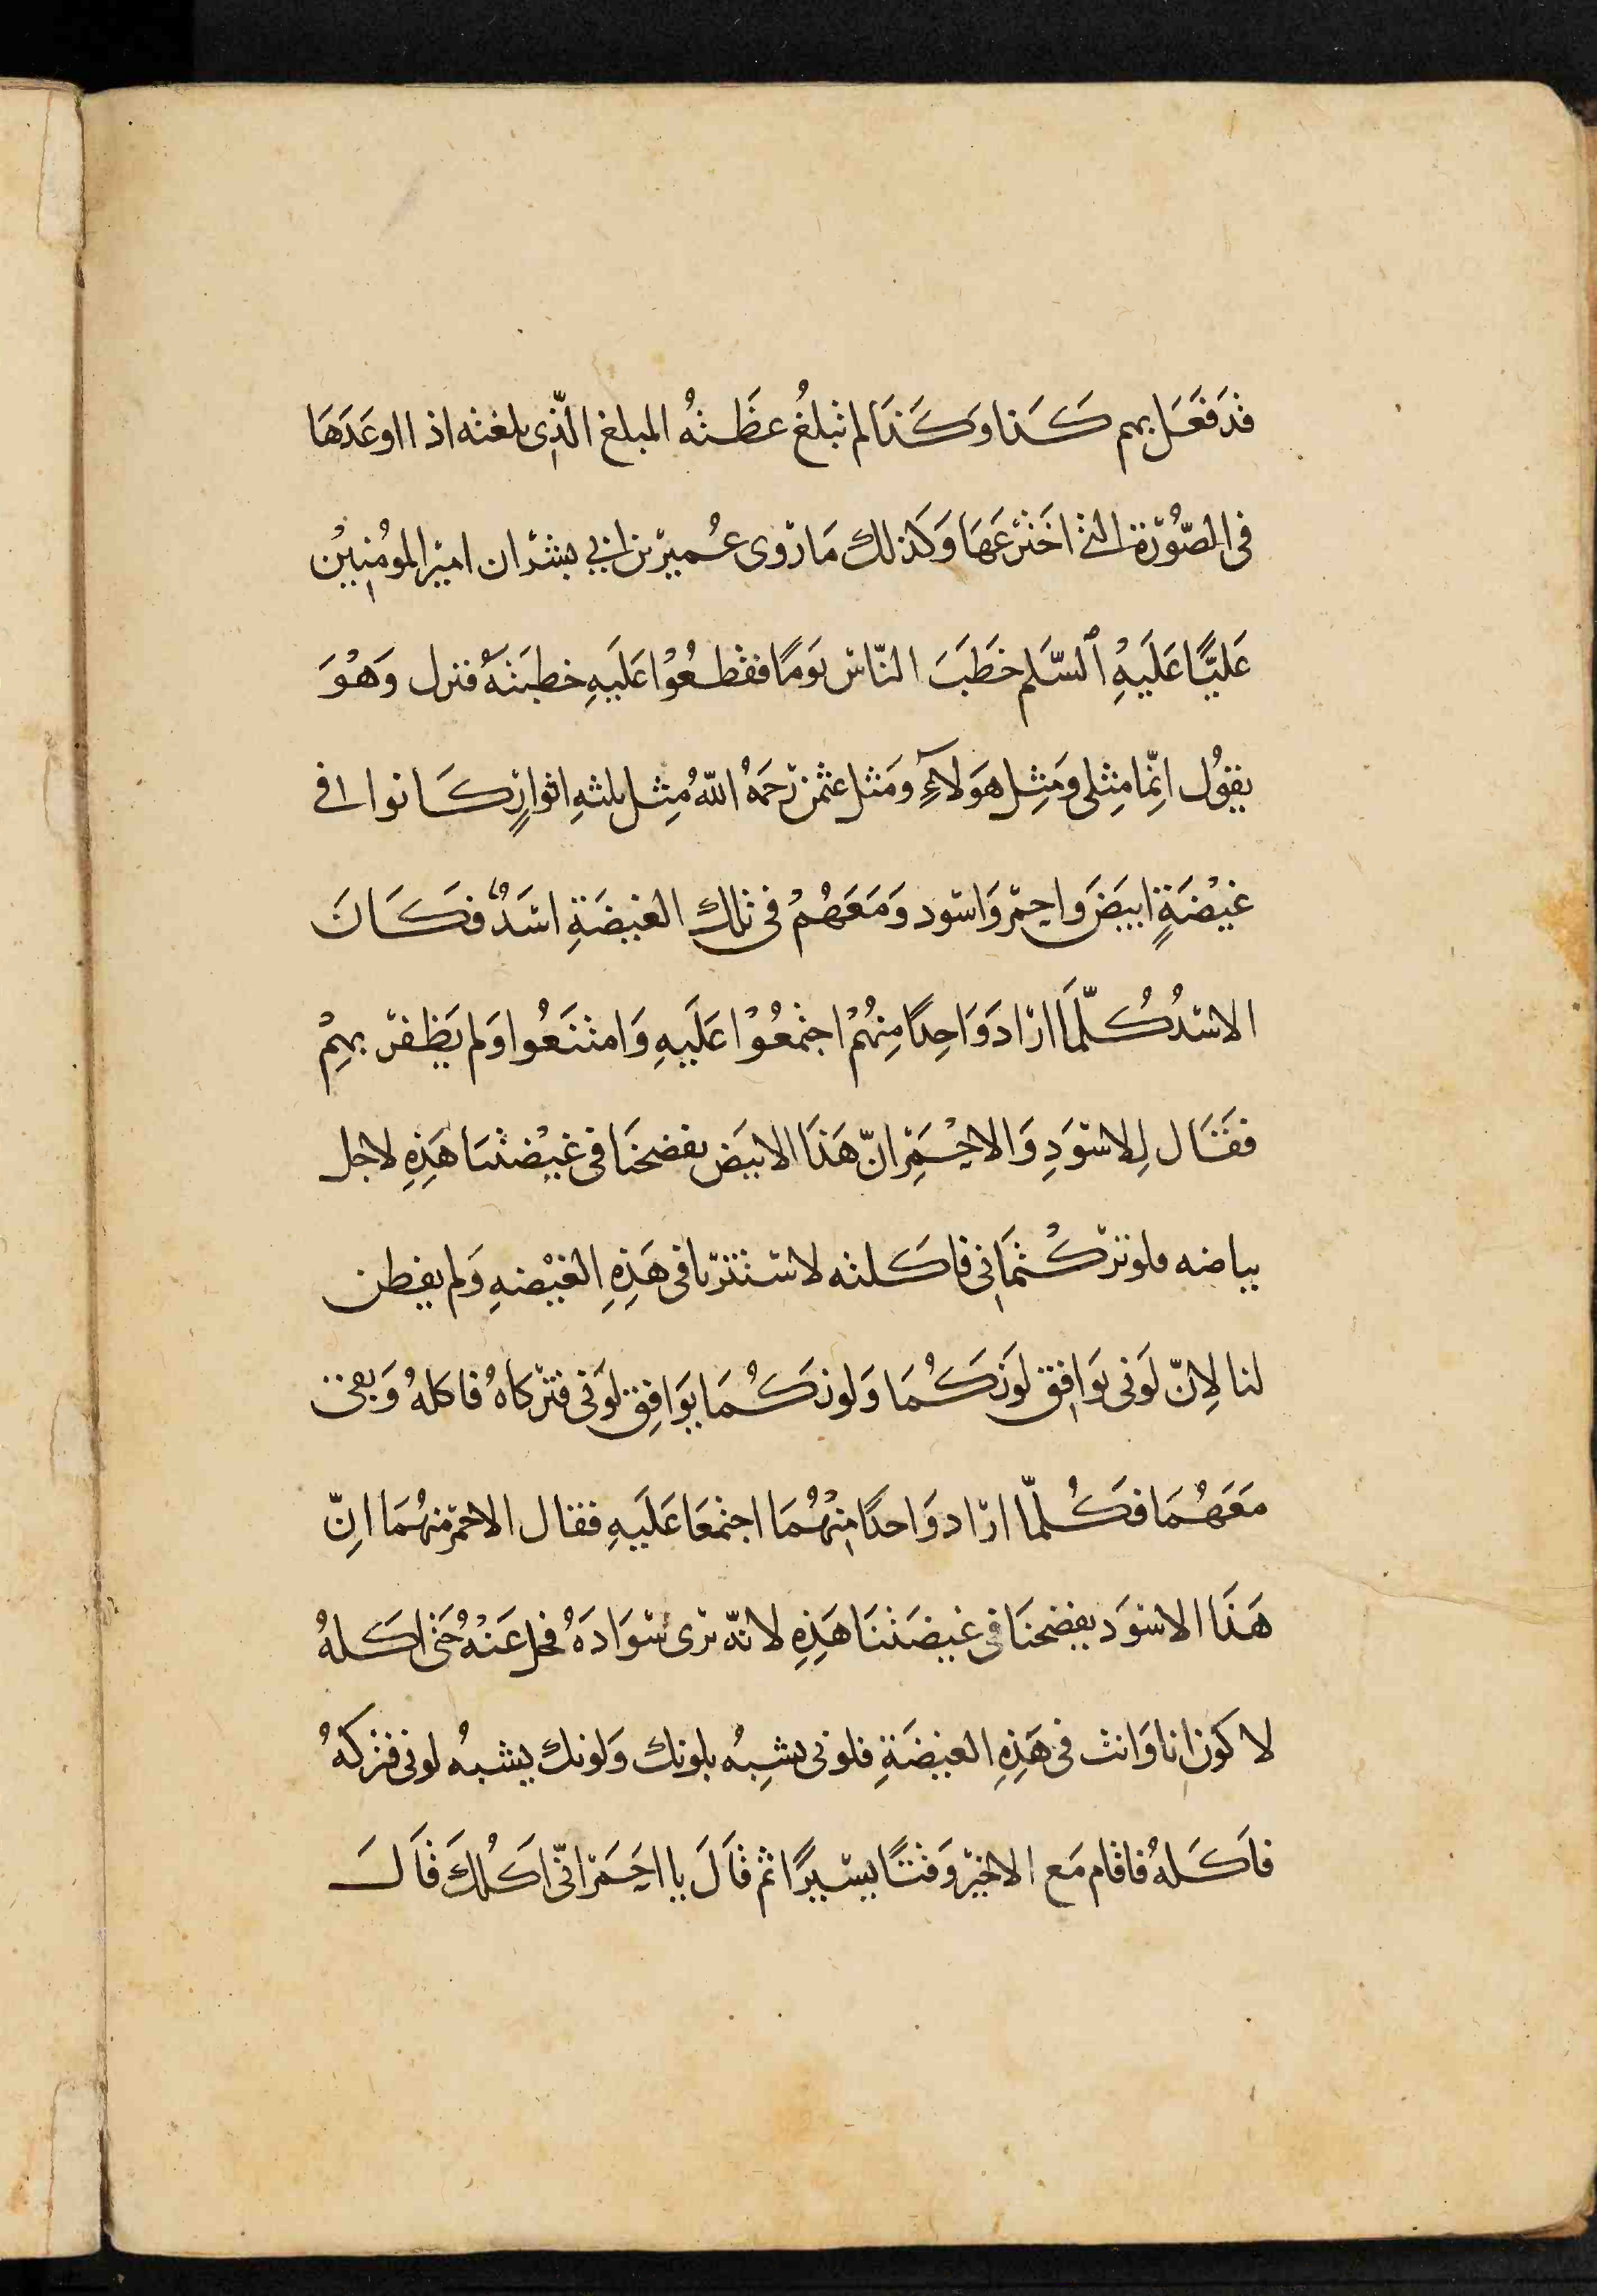 قد فَعَل بهم كَذا وكَذا لم تبلغُ عظَتهُ المبلغ الّذِى بلغته اذا اوعَدَهَا
فى الصّوُرة التى اختَرعَهَا وَكذلك مَا روى عُمير بن ابي بشر ان امير المومُنِيْن
عَليًّا عَلَيهِ السَّلم خَطَبَ النّاس يَومًا فقطعُوْا عَلَيهِ خطبَتَهُ فنزل وَهُوَ
يقوُل انِمّا مِثلى ومَثِل هَولاءِ ومَثل عثمن رَحمَهُ اللّهُ مِثل ثلثهِ اثوارٍ كَانوا فى
غيْضَةٍ ابيَضَ وَاحمر وَاسود وَمَعَهُمْ فى تلك الغيضَةِ اسَدٌ فكَانَ
الاسَدُ كُلّمَا ارادَ وَاحِدًا مِنهُمْ اجتمعُوْا عَلَيهِ وَامتنَعُوا وَلم يَظفر بهِمْ
فقَال لِلاسوَدِ وَالاحْمَرِ انّ هَذَا الابيَض يفضحنَا فى غيْضتنَا هَذِهِ لاجل
بياضه فلو تركتُمَانِى فاكَلته لاستترنا فى هَذِهِ الغيْضهِ وَلم يفطن
لنا لِانّ لَونى يوَافِق لَونكُمَا وَلونكُمَا يوَافِق لَونى فتركاهُ فاكلهُ وَبقى
مَعَهُمَا فكُلّما اراد وَاحدًا مِنْهُمَا اجتمعَا عَلَيهِ فقال الاحمر منهُمَا انِّ
هَذَا الاسوَد يفضحنَا فى غيضَتنَا هَذِهِ لانّه يرى سوَادَهُ فخل عَنْهُ حَتى اكَلهُ
لاكون انا وَانت فى هَذِهِ الغيضَةِ فلونى يشبِهُ بلونك وَلونك يشبهُ لونى فتركهُ
فاَكَلهُ فاقام مَع الاخير وَقتًا يسيرًا ثم قَالَ يا احمَر انّى اكلُك قَالَ